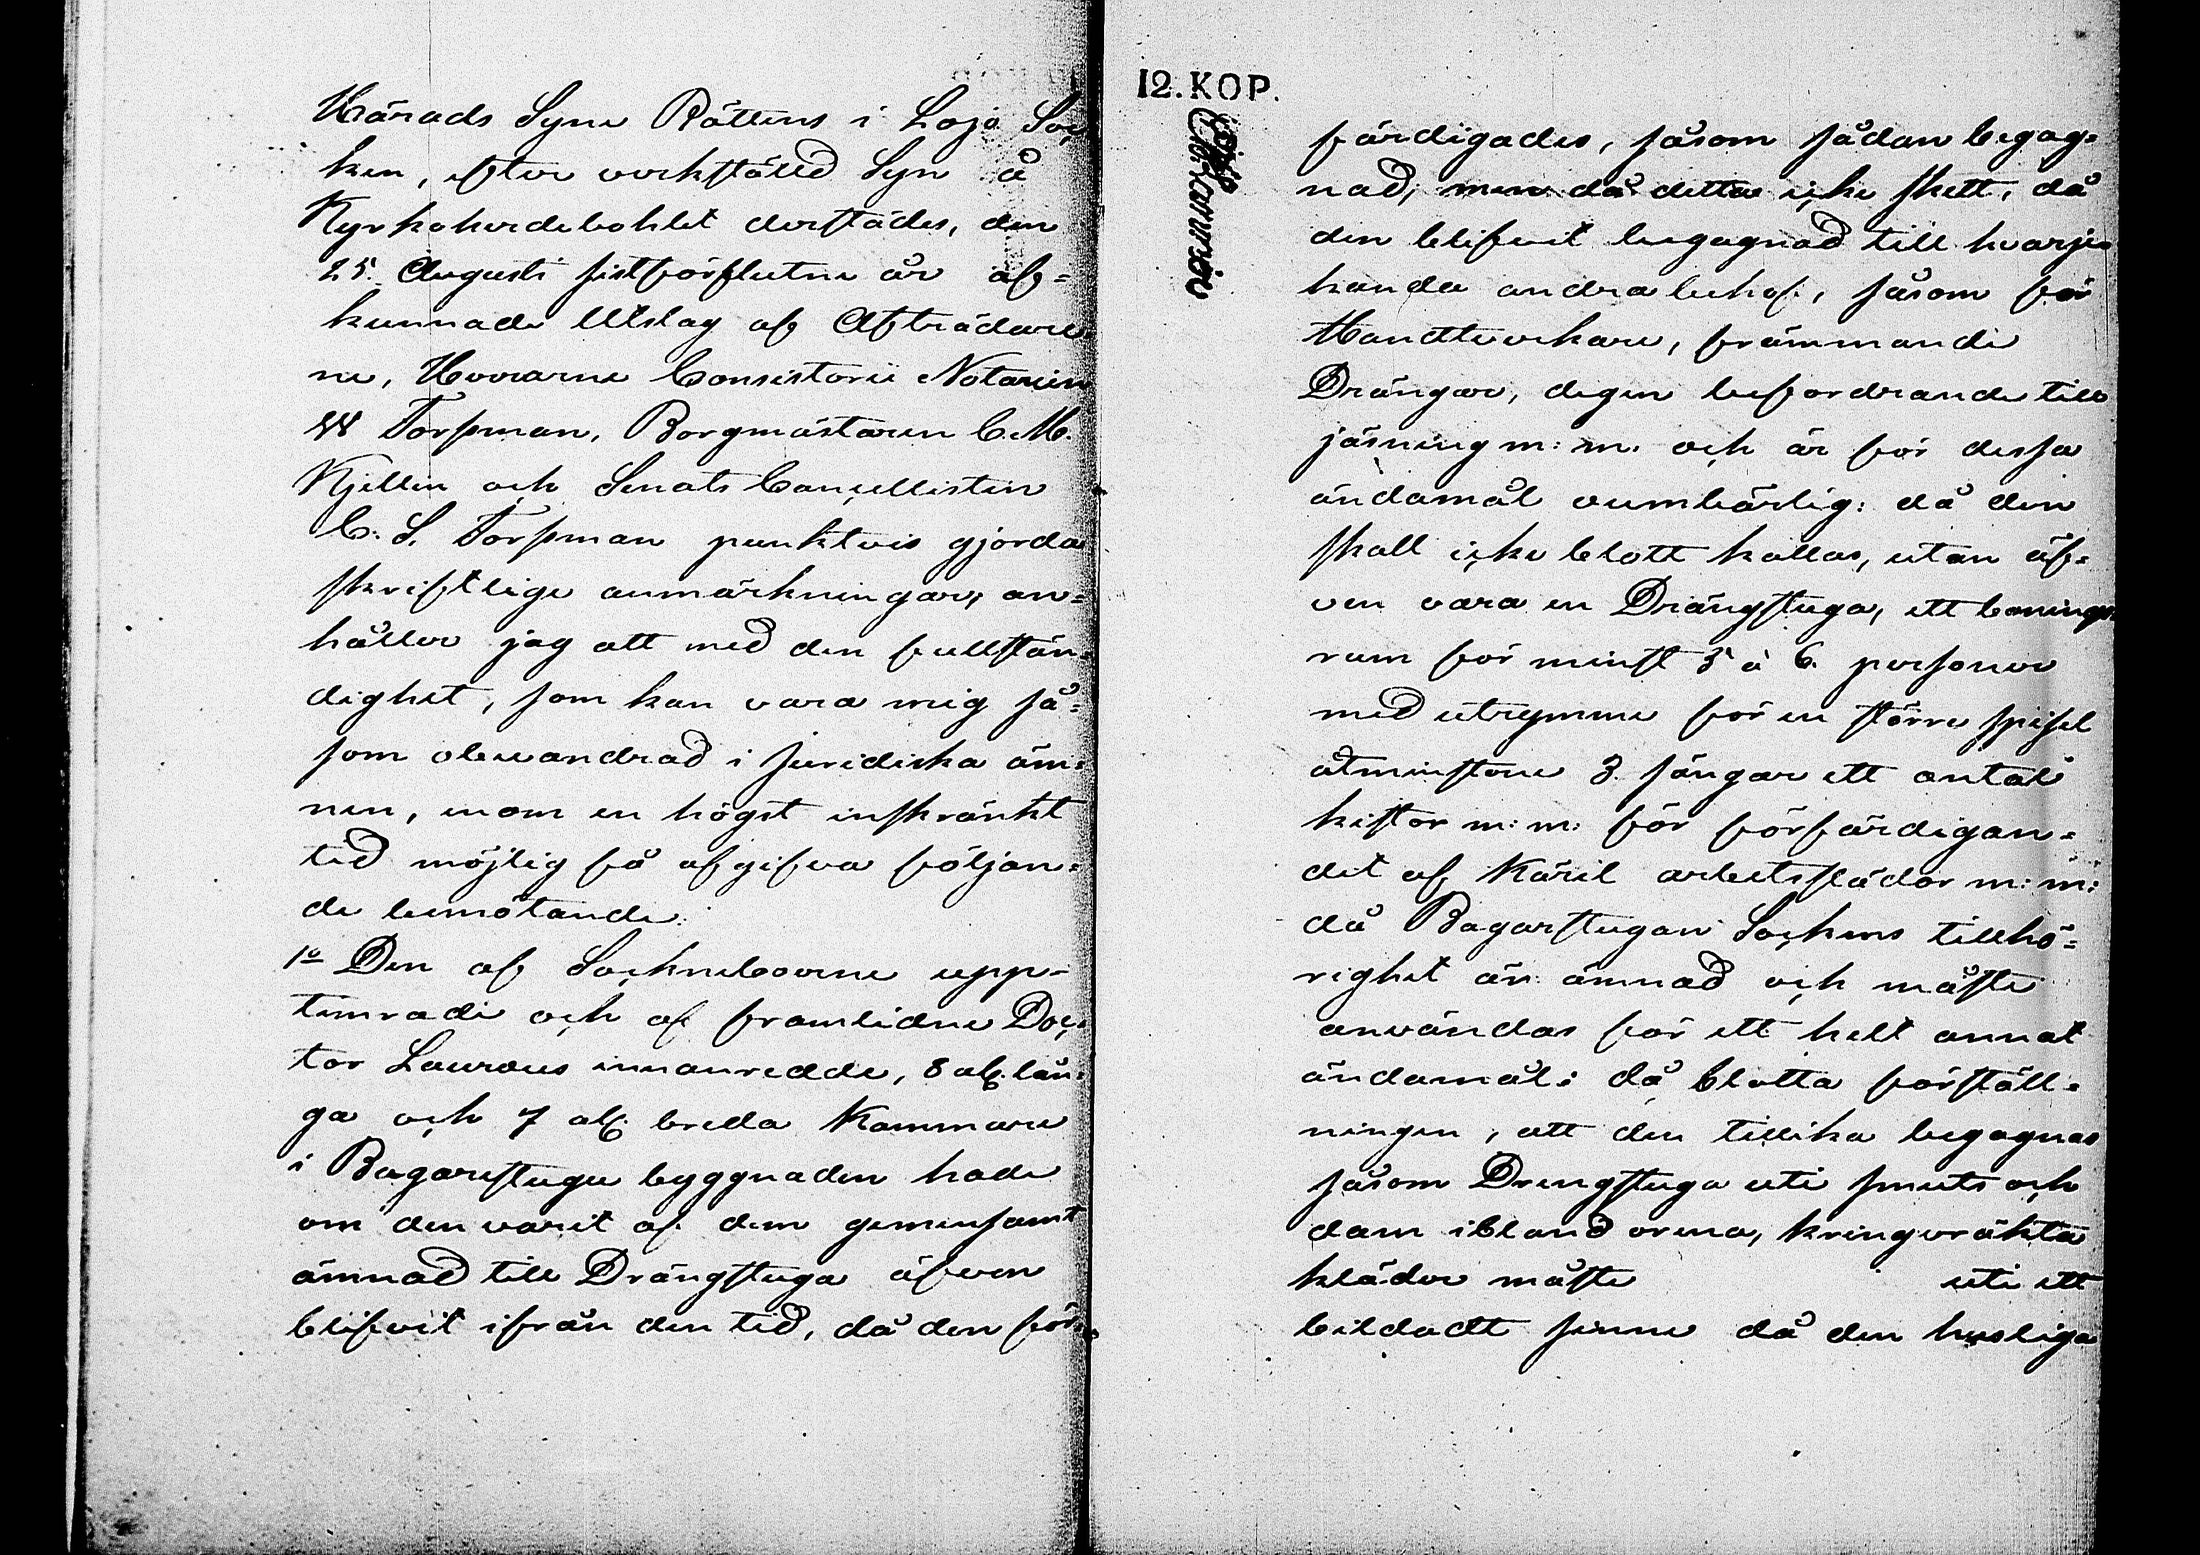 Härads Syne Rättens i Lojo Soc
ken, efter verkställd Syn å
Kyrkoherdebohlet derstädes, den
25. Augusti sistförflutne år af=
kunnade Utslag af Afträdare
ne, Herrarne Consistorii Notarien
W Forsman, Borgmästaren C. M.
Kjellin och Senats Cancellisten
C. S. Forsman punktvis gjorda
skriftlige anmärkningar, an=
håller jag att med den fullstän=
dighet, som kan vara mig så=
som obevandrad i juridiska äm=
nen, inom en högst inskränkt
tid möjlig få afgifva följan=
de bemötande:
1o Den af Sockneboerne upp=
timrade och af framlidne Doc=
tor Lauraeus innanredde, 8 aln. lån=
ga och 7 aln. breda Kammare
i Bagarestugu byggnaden hade
om den varit af dem gemensamt
ämnad till Drängstuga äfven
blifvit ifrån den tid, då den för=
12. KOP.
färdigades, såsom sådan begag=
nad, men då detta icke skett, då
den blifvit begagnad till hvarje
handa andra behof, såsom för
Handtverkare, främmande
Drängar, degen befordrande till
jäsning m: m. och är för dessa
ändamål oumbärlig: då den
skall icke blott kallas, utan äf=
ven vara en Drängstuga, ett bonings
rum för minst 5 à 6. personer
med utrymme för en större spisel
åtminstone 3. sängar ett antal
kistor m: m: för förfärdigan=
det af Käril arbetsslädor m: m:
då Bagarstugan Sockens tillhö=
righet är ämnad och måste
användas för ett helt annat
ändamål: då blotta förställ=
ningen, att den tillika begagnas
såsom Drengstuga uti smuts och
dam ibland orena, kringvräkta
kläder måste uti ett
bildadt sinne då den husliga